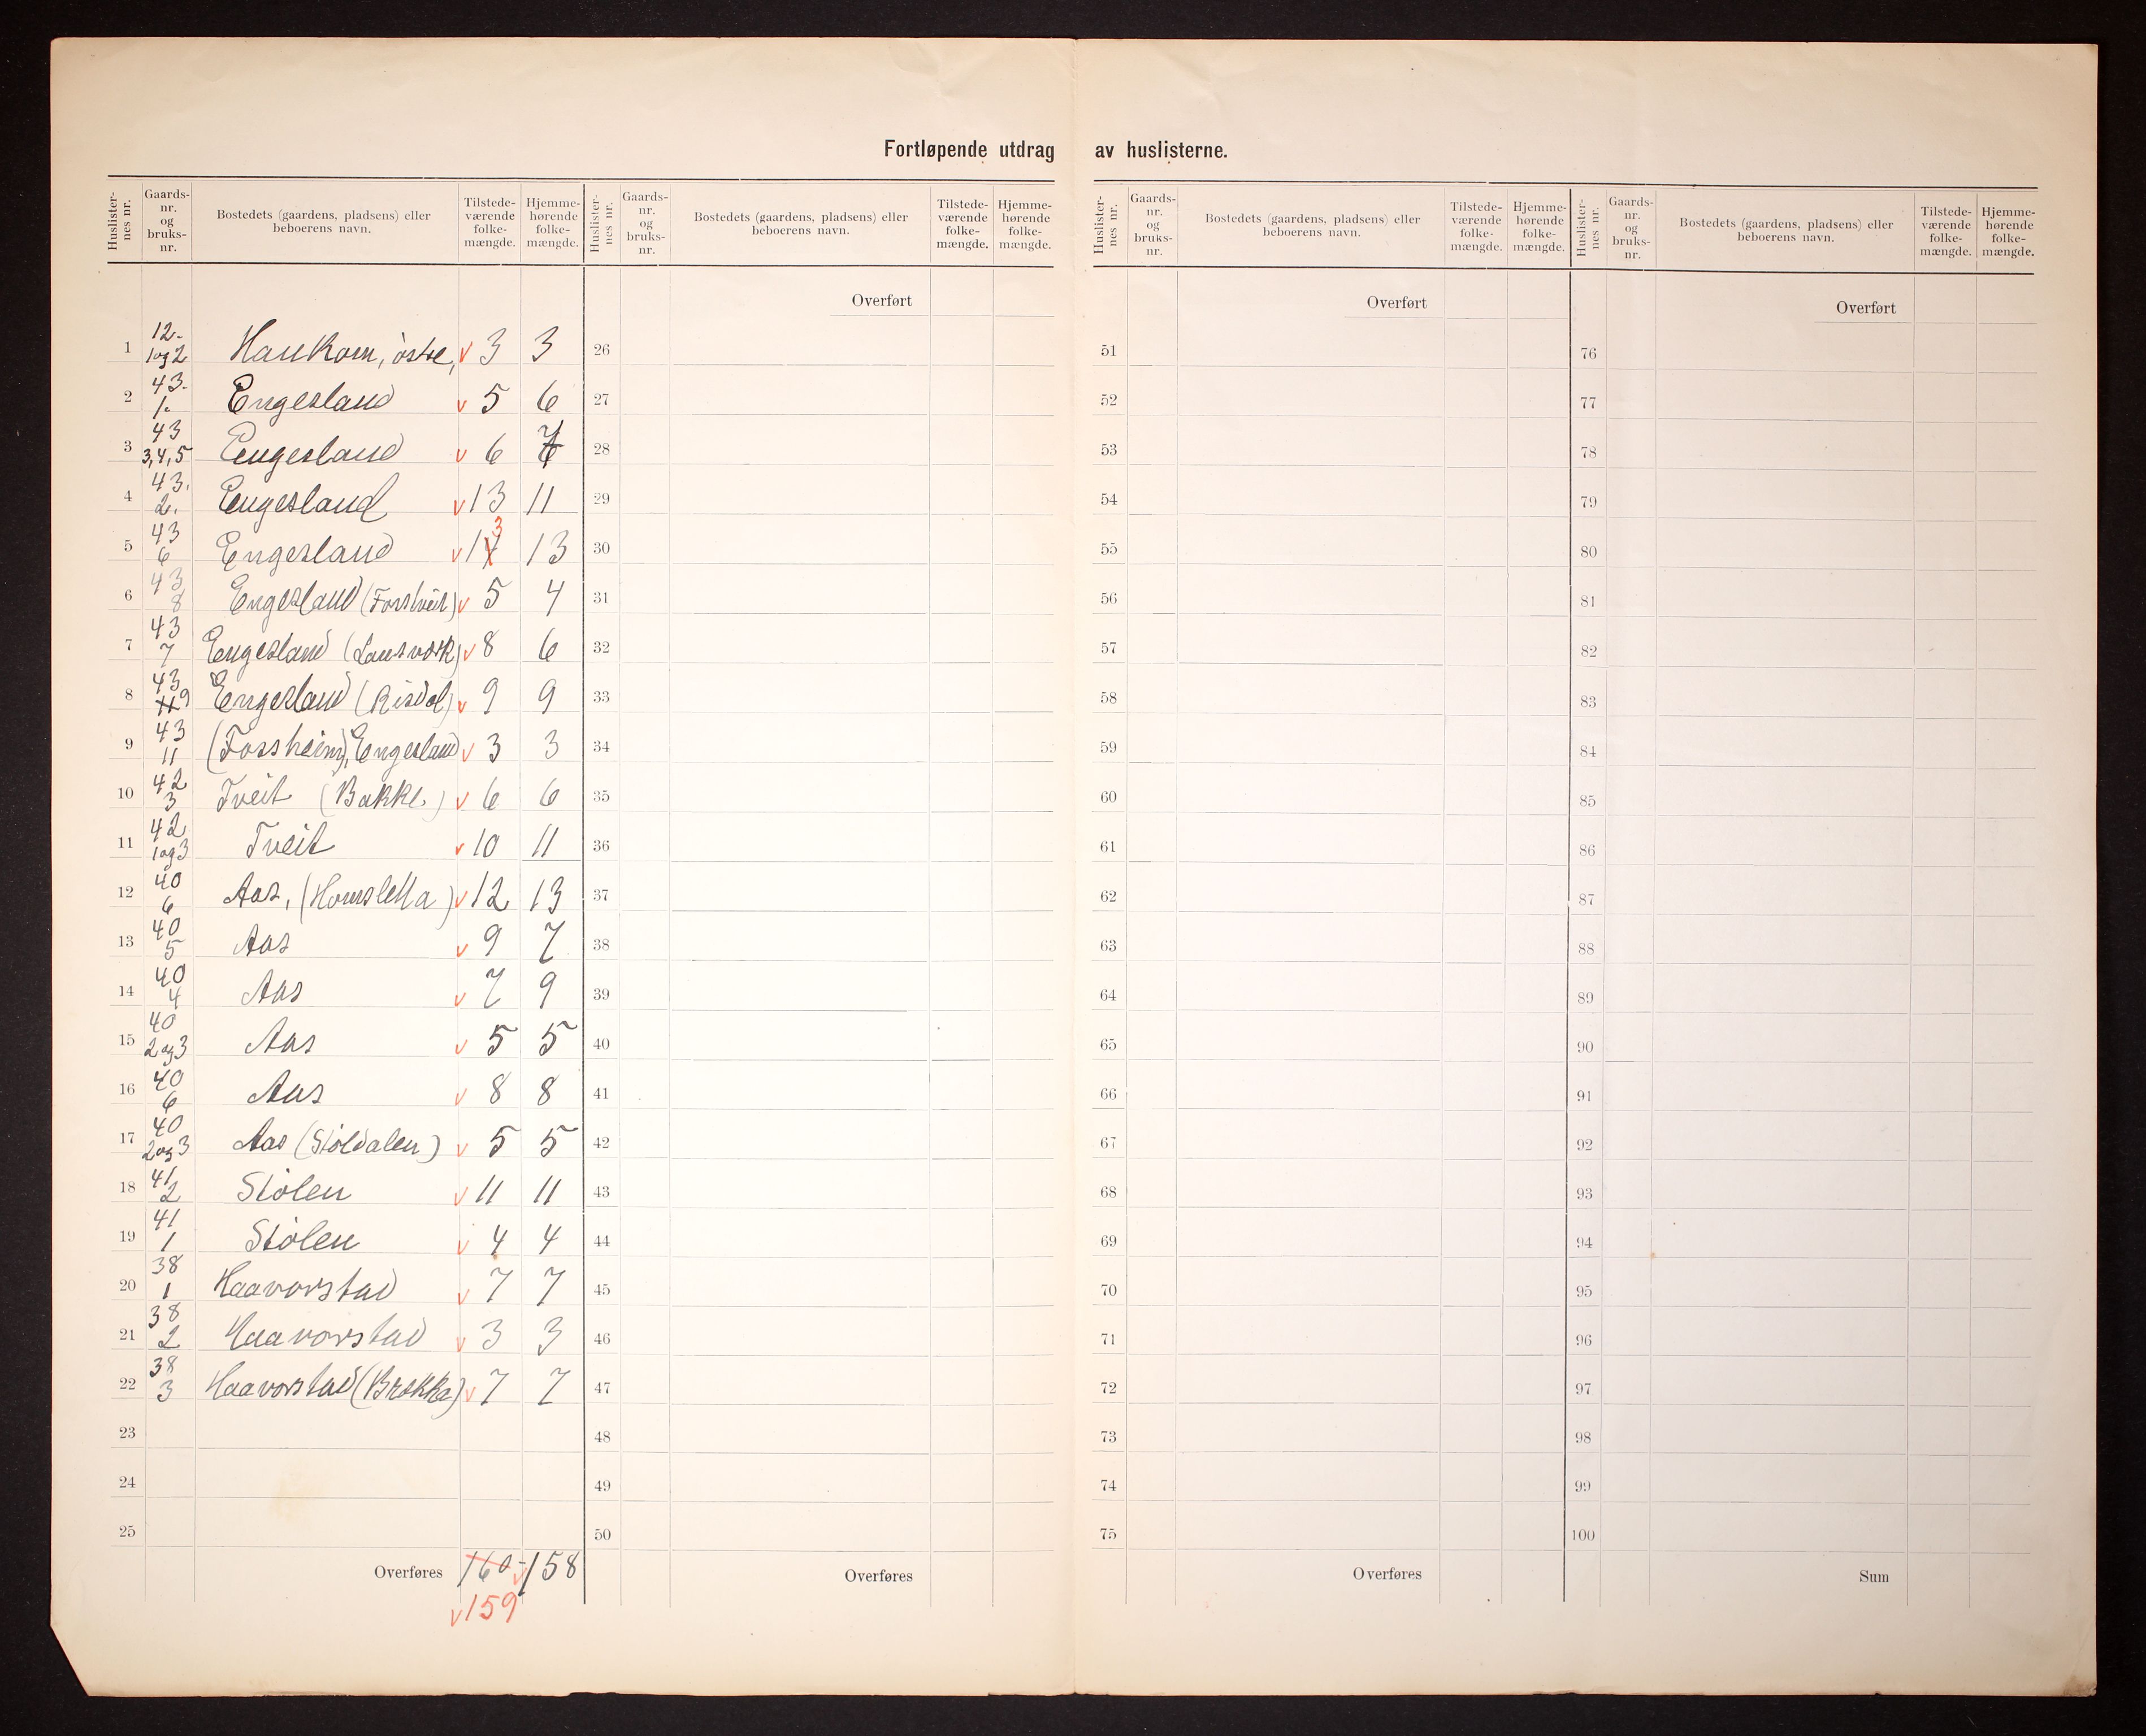 Fortløpende utdrag av huslisterne.
Huslister-nes nr. Gaards-nr. og bruks-nr. Bostedets (gaardens, pladsens) eller beboerens navn. Tilstede-værende folke-mængde. Hjemme-hørende folke-mængde.
Huslister-nes nr. Gaards-nr. og bruks-nr. Bostedets (gaardens, pladsens) eller beboerens navn. Tilstede-værende folke-mængde. Hjemme-hørende folke-mængde.
Huslister-nes nr. Gaards-nr. og bruks-nr. Bostedets (gaardens, pladsens) eller beboerens navn. Tilstede-værende folke-mængde. Hjemme-hørende folke-mængde.
Huslister-nes nr. Gaards-nr. og bruks-nr. Bostedets (gaardens, pladsens) eller beboerens navn. Tilstede-værende folke-mængde. Hjemme-hørende folke-mængde.
Overført Overført Overført
1 12- 1og2 Haukom, østre, v 3 3 26 51 76
2 43- 1- Engesland v 5 6 27 52 77
3 43 3,4,5 Engesland v 6 28 53 78
4 43. 2. Engesland v 13 11 29 54 79
5 43 6 Engesland v 13 13 30 55 80
6 43 8 Engesland (Forstveit) v 5 4 31 56 81
7 43 7 Engesland v 8 6 32 57 82
8 43 9 Engesland (Risdal) v 9 9 33 58 83
9 43 11 (Fossheim), Engesland v 3 3 34 59 84
10 42 3 Tveit (Bakke) v 6 6 35 60 85
11 42 1og3 Tveit v 10 11 36 61 86
12 40 6 Aas, (Homsletta) v 12 13 37 62 87
13 40 5 Aas v 9 7 38 63 88
14 40 4 Aas v 7 9 39 64 89
15 40 2og3 Aas v 5 5 40 65 90
16 40 6 Aas v 8 8 41 66 91
17 40 2og3 Aas (Støldalen) v 5 5 42 67 92
18 41 2 Stølen v 11 11 43 68 93
19 41 1 Stølen v 4 4 44 69 94
20 38 1 Haavorstad v 7 7 45 70 95
21 38 2 Haavorstad v 3 3 46 71 96
22 38 3 Haavorstad (Brokka) v 7 7 47 72 97
23 48 73 98
24 49 74 99
25 50 75 100
Overføres 160 - 158 Overføres Overføres Sum
v 159